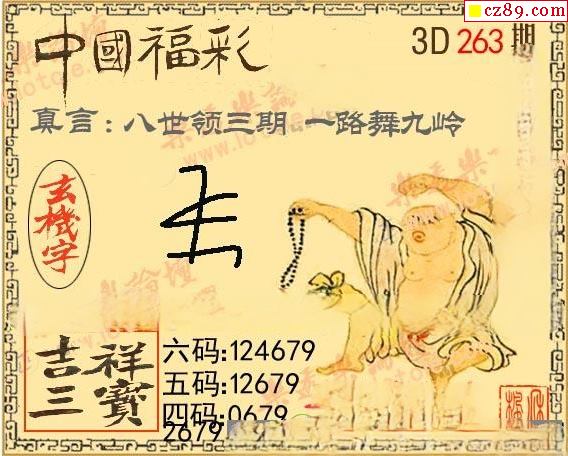 cz89.com
中國福彩
3D 263 期
真言:八世领三期 一路舞九岭
玄機字
吉祥三寶
六码:124679
五码:12679
四码:0679
2679